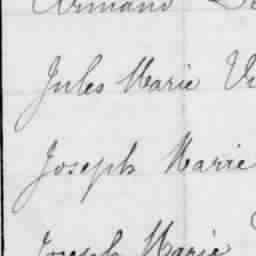 Armand
Jules Marie
Joseph Marie
Joseph Marie